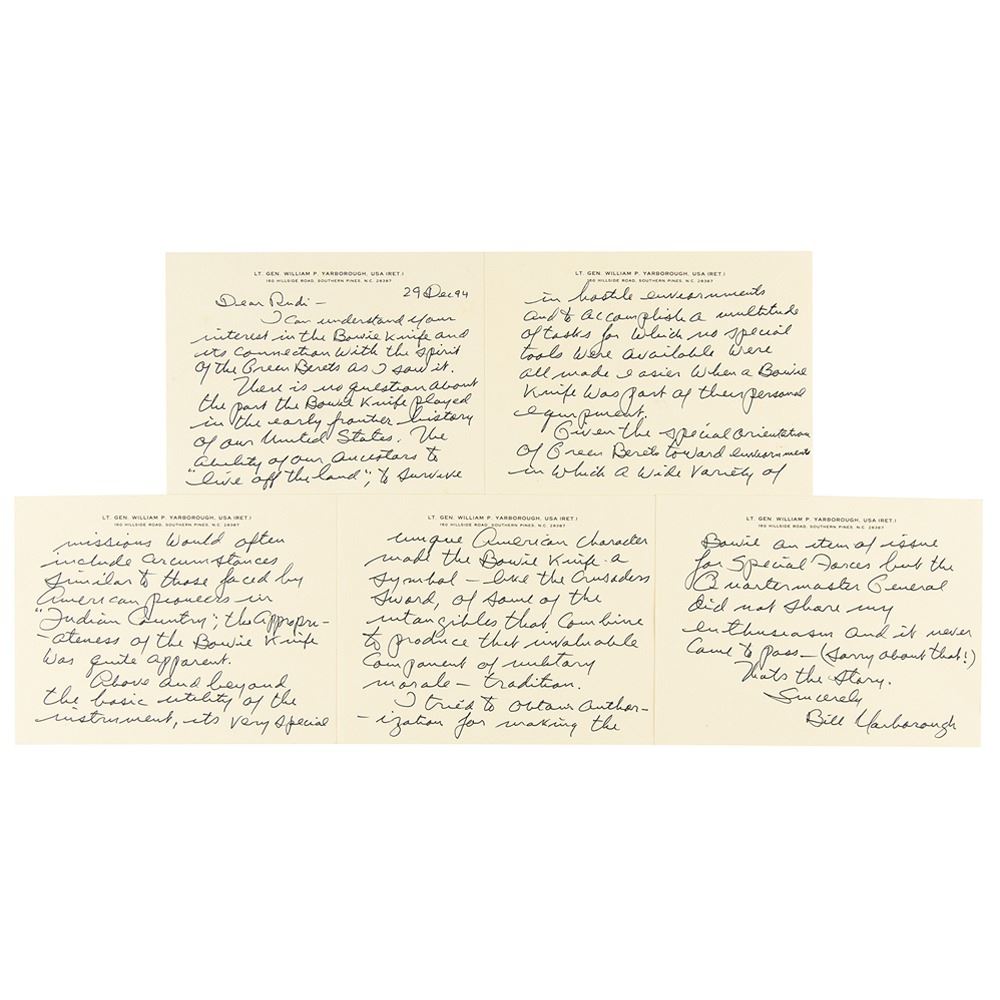 LT. GEN. WILLIAM P. YARBOROUGH, USA (RET.)
160 HILLSIDE ROAD, SOUTHERN PINES, N.C. 28387
29 Dec 94
Dear Rudi –
I can understand your
interest in the Bowie Knife and
its connection with the spirit
of the Green Berets as I saw it.
There is no question about
the part the Bowie Knife played
in the early frontier history
of our United States. The
ability of our ancestors to
"live off the land"; to survive
LT. GEN. WILLIAM P. YARBOROUGH, USA (RET.)
160 HILLSIDE ROAD, SOUTHERN PINES, N.C. 28387
in hostile environments
and to accomplish a multitude
of tasks for which no special
tools were available were
all made easier when a Bowie
Knife was part of their personal
equipment.
Given the special orientation
of Green Berets toward environments
in which a wide variety of
LT. GEN. WILLIAM P. YARBOROUGH, USA (RET.)
160 HILLSIDE ROAD, SOUTHERN PINES, N.C. 28387
missions would often
include circumstances
similar to those faced by
American pioneers in
"Indian Country"; the appropri-
-ateness of the Bowie Knife
was quite apparent.
Above and beyond
the basic utility of the
instrument, its very special
LT. GEN. WILLIAM P. YARBOROUGH, USA (RET.)
160 HILLSIDE ROAD, SOUTHERN PINES, N.C. 28387
unique American character
made the Bowie Knife a
symbol – like the Crusaders
Sword, of some of the
intangibles that combine
to produce that invaluable
component of military
morale – tradition.
I tried to obtain author-
-ization for making the
LT. GEN. WILLIAM P. YARBOROUGH, USA (RET.)
160 HILLSIDE ROAD, SOUTHERN PINES, N.C. 28387
Bowie an item of issue
for Special Forces but the
Quartermaster General
did not share my
enthusiasm and it never
came to pass – (sorry about that!)
That's the story.
Sincerely
Bill Yarborough